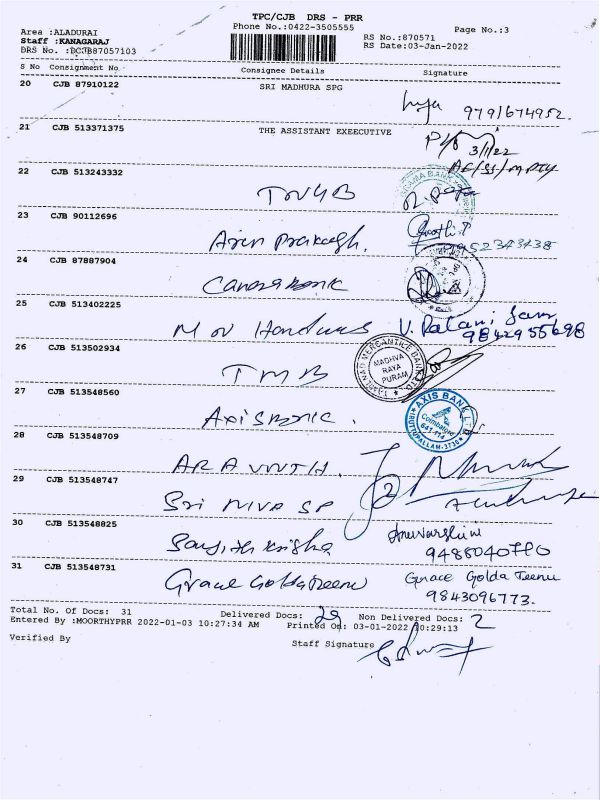 TPC/CJB DRS - PRR
Area :ALADURAI Phone No.:0422-3505555 Page No.:3
Staff :KANAGARAJ RS No.:870571
DRS No. :DCJB87057103 RS Date:03-Jan-2022
S No Consignment No. Consignee Details Signature
20 CJB 87910122 SRI MADHURA SPG
9791674952.
21 CJB 513371375 THE ASSISTANT EXEECUTIVE
3/1/22
AE/SS/MPTY
22 CJB 513243332
TNGB
23 CJB 90112696
Arun Prakash.
9952343438
24 CJB 87887904
Canara Bank
25 CJB 513402225
M on Hondures V. Palani Sam
9842955698
26 CJB 513502934
TMB
TAMILNAD MERCANTILE BANK LTD. MADHVA RAYA PURAM
27 CJB 513548560
Axis Bank.
AXIS BANK LTD. Coimbatore 641 114
28 CJB 513548709
ARAVNTH.
29 CJB 513548747
Sri NIVA SP
30 CJB 513548825
Sanjith Krisha
9488040770
31 CJB 513548731
Grace Golda Teenu Grace Golda Teenu
9843096773.
Total No. Of Docs: 31 Delivered Docs: 29 Non Delivered Docs: 2
Entered By :MOORTHYPRR 2022-01-03 10:27:34 AM Printed On: 03-01-2022 10:29:13
Verified By Staff Signature